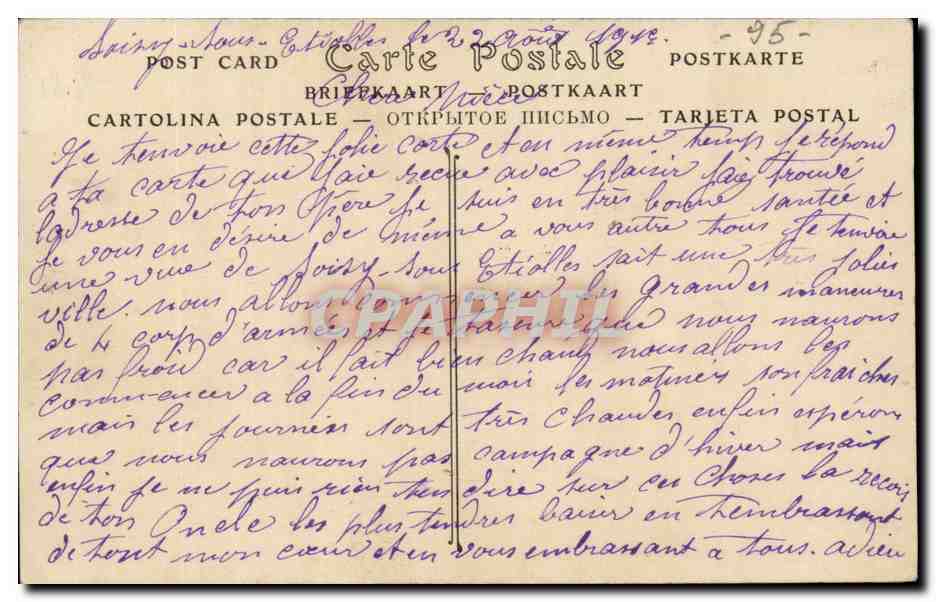 Soisy-sous-Etiolles le 22 août
- 95 -
POST CARD Carte Postale POSTKARTE
BRIEFKAART — POSTKAART
Cher Nièce
CARTOLINA POSTALE — ОТКРЫТОЕ ПИСЬМО — TARJETA POSTAL
Je tenvoie cette jolie carte et en même temp je répond
a ta carte que jaie recue avec plaisir jaie trouvé
ladresse de ton Père je suis en très bonne santée et
je vous en désire de même a vous autre tous je tenvoie
une vue de Soisy-sous Etiolles sait une très jolie
ville. nous allons commencer les grandes maneuvres
de 4 corp d'armée et je tassure que nous naurons
pas froid car il fait bien chaud nous allons les
commencer a la fin du mois les matinées son fraiches
mais les journées sont très chaudes enfin espérons
que nous naurons pas campagne d'hiver mais
enfin je ne puis rien ten dire sur ces choses la recois
de ton Oncle les plus tendres baiser en tembrassant
de tout mon cœur et en vous embrassant a tous. adieu
CPAPHIL